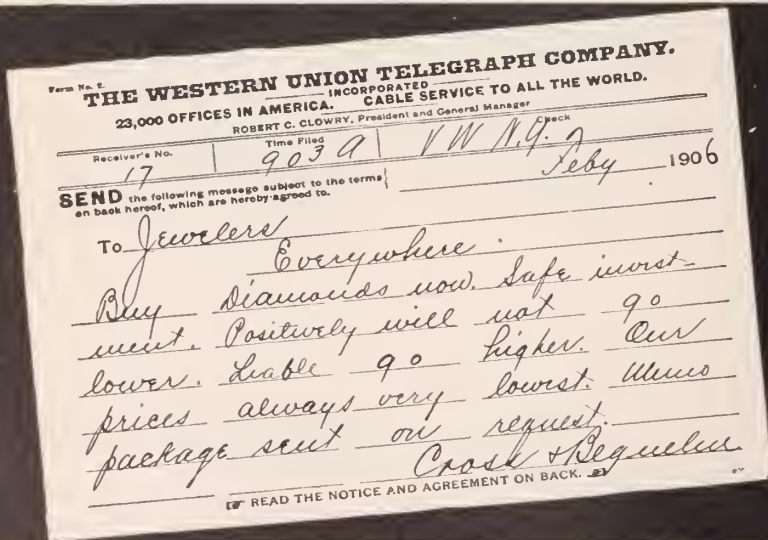 Form No. 2.
THE WESTERN UNION TELEGRAPH COMPANY.
INCORPORATED
23,000 OFFICES IN AMERICA. CABLE SERVICE TO ALL THE WORLD.
ROBERT C. CLOWRY, President and General Manager
Receiver's No. Time Filed Check
17 903 A V W N.Y.
SEND the following message subject to the terms
on back hereof, which are hereby agreed to.
Feby 1906
To Jewelers
Everywhere.
Buy Diamonds now. Safe invest-
ment. Positively will not go
lower. Liable go higher. Our
prices always very lowest. Memo
package sent on request.
Cross & Beguelin
READ THE NOTICE AND AGREEMENT ON BACK.